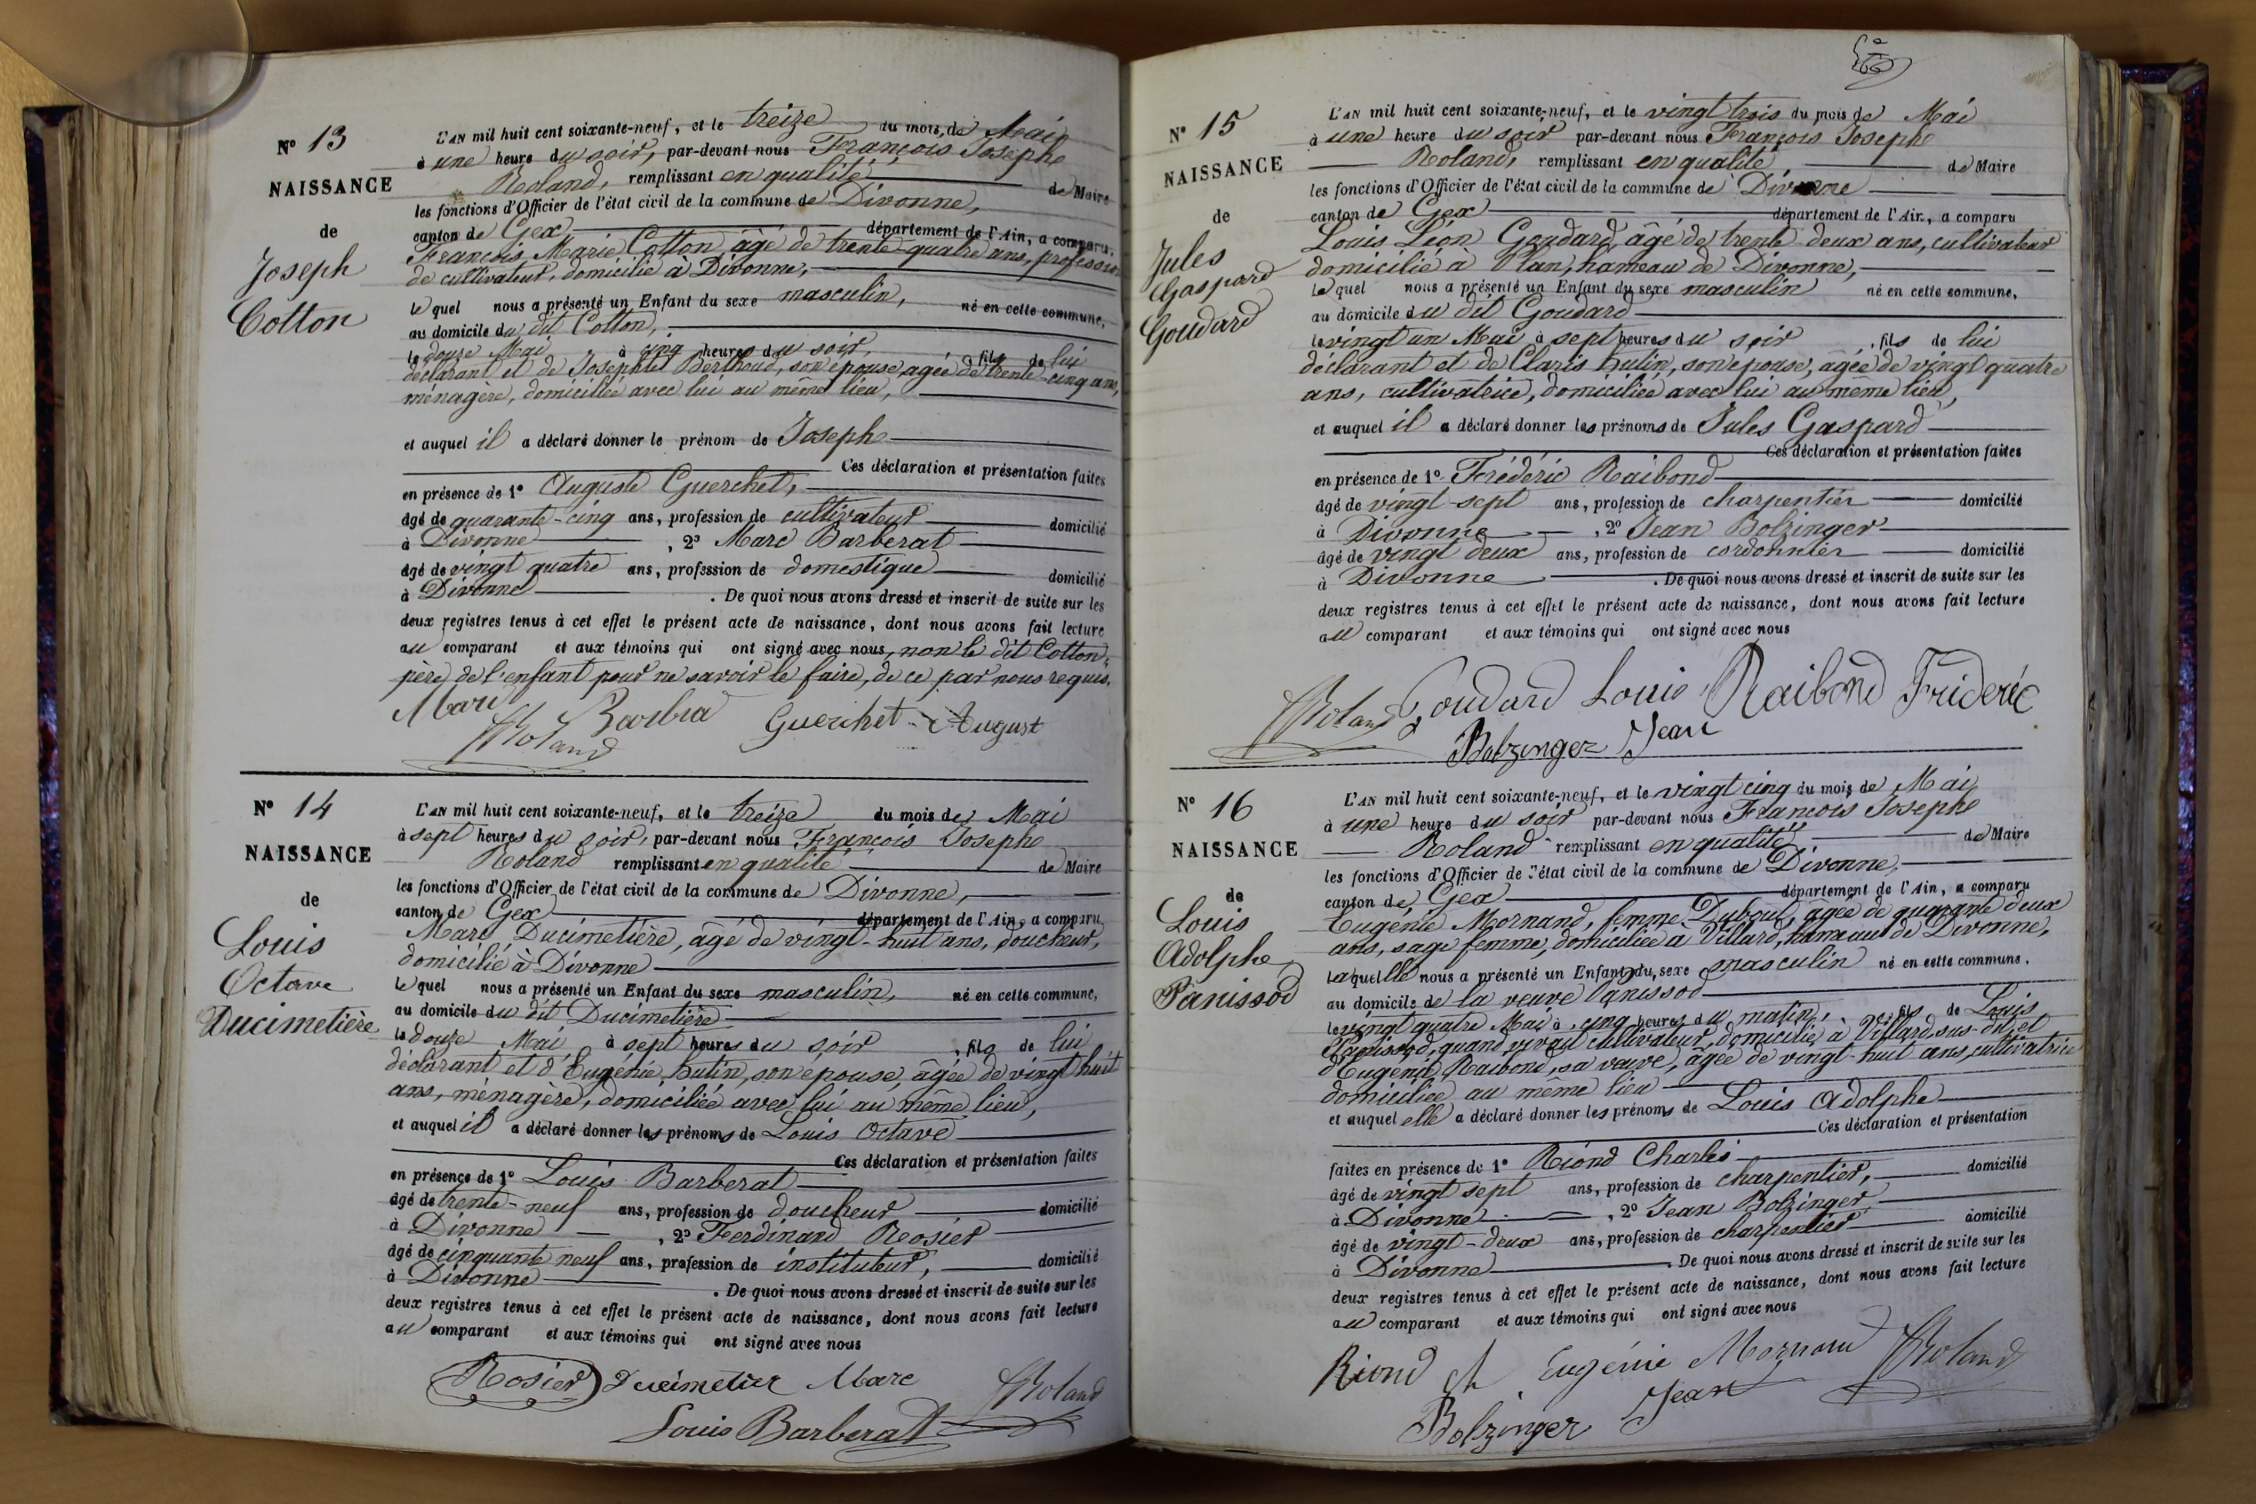 N° 13
NAISSANCE
de
Joseph
Cotton
L'AN mil huit cent soixante-neuf, et le treize du mois de Mai
à une heure du soir, par-devant nous François Joseph
Roland, remplissant en qualité de Maire
les fonctions d'Officier de l'état civil de la commune de Divonne,
canton de Gex département de l'Ain, a comparu
François Marie Cotton âgé de trente-quatre ans, profession
de cultivateur, domicilié à Divonne,
lequel nous a présenté un Enfant du sexe masculin, né en cette commune,
au domicile du dit Cotton,
le douze Mai à cinq heures du soir, fils de lui
déclarant et de Josephte Berthoud, son épouse agée de trente-cinq ans,
ménagère, domiciliée avec lui au même lieu,
et auquel il a déclaré donner le prénom de Joseph
Ces déclaration et présentation faites
en présence de 1° Auguste Guerchet,
âgé de quarante-cinq ans, profession de cultivateur domicilié
à Divonne , 2° Marc Barberat
âgé de vingt quatre ans, profession de domestique domicilié
à Divonne . De quoi nous avons dressé et inscrit de suite sur les
deux registres tenus à cet effet le présent acte de naissance, dont nous avons fait lecture
au comparant et aux témoins qui ont signé avec nous, non le dit Cotton,
père de l'enfant pour ne savoir le faire, de ce par nous requis.
Marc Barbra Guerchet August
Roland
N° 14
NAISSANCE
de
Louis
Octave
Ducimetière
L'AN mil huit cent soixante-neuf, et le treize du mois de Mai
à sept heures du soir, par-devant nous François Joseph
Roland remplissant en qualité de Maire
les fonctions d'Officier de l'état civil de la commune de Divonne,
canton de Gex département de l'Ain, a comparu
Marc Ducimetière, âgé de vingt-huit ans, doucheur,
domicilié à Divonne
lequel nous a présenté un Enfant du sexe masculin, né en cette commune,
au domicile du dit Ducimetière
le douze Mai à sept heures du soir , fils de lui
déclarant et d'Eugénie hutin, son epouse, âgée de vingt huit
ans, ménagère, domiciliée avec lui au même lieu,
et auquel il a déclaré donner les prénoms de Louis Octave
Ces déclaration et présentation faites
en présence de 1° Louis Barberat
âgé de trente-neuf ans, profession de doucheur domicilié
à Divonne , 2° Ferdinand Rosier
âgé de cinquante neuf ans, profession de instituteur, domicilié
à Divonne . De quoi nous avons dressé et inscrit de suite sur les
deux registres tenus à cet effet le présent acte de naissance, dont nous avons fait lecture
au comparant et aux témoins qui ont signé avec nous
Rosier Ducimetier Marc Roland
Louis Barberat
N° 15
NAISSANCE
de
Jules
Gaspard
Goudard
L'AN mil huit cent soixante-neuf, et le vingt trois du mois de Mai
à une heure du soir par-devant nous François Joseph
Roland, remplissant en qualité de Maire
les fonctions d'Officier de l'état civil de la commune de Divonne
canton de Gex département de l'Ain, a comparu
Louis Léon Goudard, âgé de trente deux ans, cultivateur
domicilié à Plan, hameau de Divonne,
lequel nous a présenté un Enfant du sexe masculin né en cette commune,
au domicile du dit Goudard
le vingt un Mai à sept heures du soir , fils de lui
déclarant et de Claris hutin, son epouse, agée de vingt quatre
ans, cultivatrice, domiciliée avec lui au même lieu,
et auquel il a déclaré donner les prénoms de Jules Gaspard
Ces déclaration et présentation faites
en présence de 1° Frédéric Raibond
âgé de vingt-sept ans, profession de charpentier domicilié
à Divonne , 2° Jean Bolzinger
âgé de vingt deux ans, profession de cordonnier domicilié
à Divonne . De quoi nous avons dressé et inscrit de suite sur les
deux registres tenus à cet effet le présent acte de naissance, dont nous avons fait lecture
au comparant et aux témoins qui ont signé avec nous
Roland Goudard Louis Raibond Fridéric
Bolzinger Jean
N° 16
NAISSANCE
de
Louis
Adolphe
Panissod
L'AN mil huit cent soixante-neuf, et le vingt cinq du mois de Mai
à une heure du soir par-devant nous François Joseph
Roland remplissant en qualité de Maire
les fonctions d'Officier de l'état civil de la commune de Divonne,
canton de Gex département de l'Ain, a comparu
Eugénie Mornand, femme Dubout, âgée de quarante deux
ans, sage femme, domiciliée à Villard, hameau de Divonne,
laquelle nous a présenté un Enfant du sexe masculin né en cette commune,
au domicile de la veuve Panissod
le vingt quatre Mai à cinq heures du matin, fils de Louis
Panissod, quand vivait cultivateur, domicilié à Villard, sus-dit, et
d'Eugénie Raibond, sa veuve, âgée de vingt-huit ans, cultivatrice
domiciliée au même lieu
et auquel elle a déclaré donner les prénoms de Louis Adolphe
Ces déclaration et présentation
faites en présence de 1° Riond Charles
âgé de vingt sept ans, profession de charpentier, domicilié
à Divonne , 2° Jean Bolzinger
âgé de vingt-deux ans, profession de charpentier domicilié
à Divonne . De quoi nous avons dressé et inscrit de suite sur les
deux registres tenus à cet effet le présent acte de naissance, dont nous avons fait lecture
au comparant et aux témoins qui ont signé avec nous
Riond ch Eugénie Mornand Roland
Bolzinger Jean